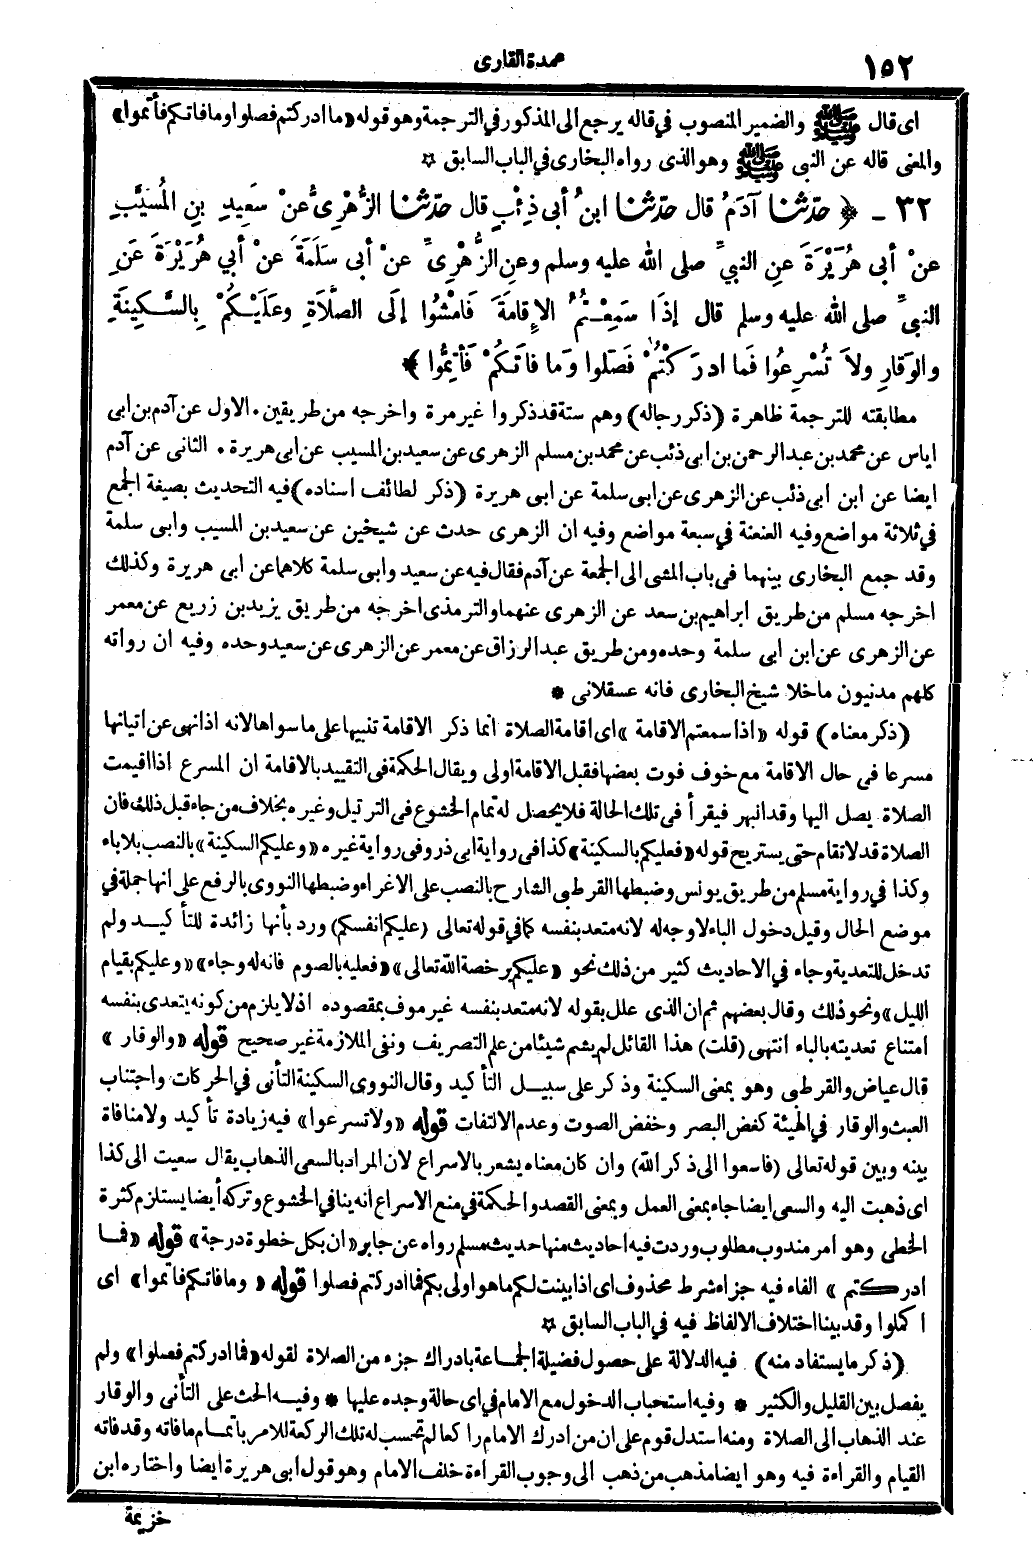 ١٥٢
عمدة القارى
اى قال ﷺ والضمير المنصوب فى قاله يرجع الى المذكور فى الترجمة وهو قوله «ما ادركتم فصلوا وما فاتكم فأتموا»
والمعنى قاله عن النبى ﷺ وهو الذى رواه البخارى فى الباب السابق ☆
٣٢ - ﴿ حدّثنا آدَمُ قال حدّثنا ابنُ أبى ذِئْبٍ قال حدّثنا الزُّهْرِىُّ عنْ سَعِيدِ بنِ المُسَيَّبِ
عنْ أبى هُرَيْرَةَ عنِ النبىِّ صلى الله عليه وسلم وعنِ الزُّهْرِىِّ عنْ أبى سَلَمَةَ عنْ أبي هُرَيْرَةَ عَنِ
النبىِّ صلى الله عليه وسلم قال إذَا سَمِعْتُمُ الإِقامَةَ فَامْشُوا إلَى الصَّلاَةِ وعَلَيْكُمْ بِالسَّكِينَةِ
والوَقارِ ولاَ تُسْرِعُوا فَما ادرَكْتُمْ فَصَلوا وَما فاتَكُمْ فَأتِمُّوا ﴾
مطابقته للترجمة ظاهرة (ذكر رجاله) وهم ستة قد ذكروا غير مرة واخرجه من طريقين. الاول عن آدم بن ابى
اياس عن محمد بن عبد الرحمن بن ابى ذئب عن محمد بن مسلم الزهرى عن سعيد بن المسيب عن ابى هريرة. الثانى عن آدم
ايضا عن ابن ابى ذئب عن الزهرى عن ابى سلمة عن ابى هريرة (ذكر لطائف اسناده) فيه التحديث بصيغة الجمع
فى ثلاثة مواضع وفيه العنعنة فى سبعة مواضع وفيه ان الزهرى حدث عن شيخين عن سعيد بن المسيب وابى سلمة
وقد جمع البخارى بينهما فى باب المشى الى الجمعة عن آدم فقال فيه عن سعيد وابى سلمة كلاهما عن ابى هريرة وكذلك
اخرجه مسلم من طريق ابراهيم بن سعد عن الزهرى عنهما والترمذى اخرجه من طريق يزيد بن زريع عن معمر
عن الزهرى عن ابن ابى سلمة وحده ومن طريق عبد الرزاق عن معمر عن الزهرى عن سعيد وحده وفيه ان رواته
كلهم مدنيون ما خلا شيخ البخارى فانه عسقلانى *
(ذكر معناه) قوله «اذا سمعتم الاقامة» اى اقامة الصلاة انما ذكر الاقامة تنبيها على ما سواها لانه اذا نهى عن اتيانها
مسرعا فى حال الاقامة مع خوف فوت بعضها فقبل الاقامة اولى ويقال الحكمة فى التقييد بالاقامة ان المسرع اذا اقيمت
الصلاة يصل اليها وقد انبهر فيقرأ فى تلك الحالة فلا يحصل له تمام الخشوع فى الترتيل وغيره بخلاف من جاء قبل ذلك فان
الصلاة قد لا تقام حتى يستريح قوله «فعليكم بالسكينة» كذا فى رواية ابى ذر وفى رواية غيره «وعليكم السكينة» بالنصب بلا باء
وكذا فى رواية مسلم من طريق يونس وضبطها القرطبى الشارح بالنصب على الاغراء وضبطها النووى بالرفع على انها جملة فى
موضع الحال وقيل دخول الباء لا وجه له لانه متعد بنفسه كما فى قوله تعالى (عليكم انفسكم) ورد بأنها زائدة للتأكيد ولم
تدخل للتعدية وجاء فى الاحاديث كثير من ذلك نحو «عليكم برخصة الله تعالى» «فعليه بالصوم فانه له وجاء» «وعليكم بقيام
الليل» ونحو ذلك وقال بعضهم ثم ان الذى علل بقوله لانه متعد بنفسه غير موف بمقصوده اذ لا يلزم من كونه يتعدى بنفسه
امتناع تعديته بالباء انتهى (قلت) هذا القائل لم يشم شيئا من علم التصريف ونفى الملازمة غير صحيح قوله «والوقار»
قال عياض والقرطبى وهو بمعنى السكينة وذكر على سبيل التأكيد وقال النووى السكينة التأنى فى الحركات واجتناب
العبث والوقار فى الهيئة كغض البصر وخفض الصوت وعدم الالتفات قوله «ولا تسرعوا» فيه زيادة تأكيد ولا منافاة
بينه وبين قوله تعالى (فاسعوا الى ذكر الله) وان كان معناه يشعر بالاسراع لان المراد بالسعى الذهاب يقال سعيت الى كذا
اى ذهبت اليه والسعى ايضا جاء بمعنى العمل وبمعنى القصد والحكمة فى منع الاسراع انه ينافى الخشوع وتركه أيضا يستلزم كثرة
الخطى وهو امر مندوب مطلوب وردت فيه احاديث منها حديث مسلم رواه عن جابر «ان بكل خطوة درجة» قوله «فما
ادركتم» الفاء فيه جزاء شرط محذوف اى اذا بينت لكم ما هو اولى بكم فما ادركتم فصلوا قوله «وما فاتكم فأتموا» اى
اكملوا وقد بينا اختلاف الالفاظ فيه فى الباب السابق ☆
(ذكر ما يستفاد منه) فيه الدلالة على حصول فضيلة الجماعة بادراك جزء من الصلاة لقوله «فما ادركتم فصلوا» ولم
يفصل بين القليل والكثير * وفيه استحباب الدخول مع الامام فى اى حالة وجده عليها * وفيه الحث على التأنى والوقار
عند الذهاب الى الصلاة ومنه استدل قوم على ان من ادرك الامام راكعا لم تحسب له تلك الركعة للامر باتمام ما فاته وقد فاته
القيام والقراءة فيه وهو ايضا مذهب من ذهب الى وجوب القراءة خلف الامام وهو قول ابى هريرة ايضا واختاره ابن
خزيمة